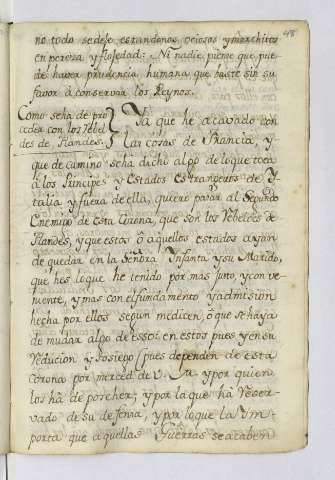 48
no todo se deſe estandonos, ociosos y marchitos
en pereza y flojedad: Ni nadie piense que pue-
de haver prudencia humana que baste sin su
favor à conservar los Reynos.
Como se ha de pro-
ceder con los Rebel-
des de Flandes.
Ya que he acavado con
las cosas de Francia, y
que de camino se ha dicho algo de lo que toca
à los Principes y Estados estrangeros de Y-
talia y fuera de ella, quiero pasar al Segundo
Enemigo de esta Corona, que son los Rebeldes de
Flandes, y que estos ò aquellos estados ayan
de quedar en la Señora Infanta y su Marido,
que hes lo que he tenido por mas justo, y conve-
niente, y mas con el fundamento y admision
hecha por ellos segun me dicen, ò que se haya
de mudar algo de esso; en estos pues y en su
Reducion y Sosiego (pues dependen de esta
corona por merced de V. M. y por quien
los hà de poseher; y por la que hà Reser-
vado de su defensa, y por lo que la Ym-
porta que aquellas Guerras se acaben